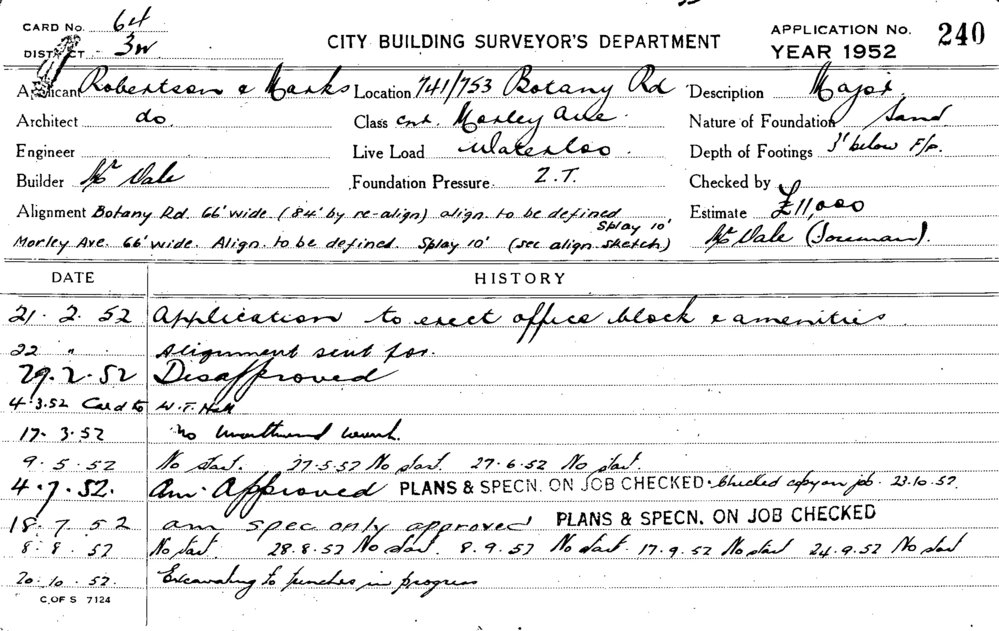 CARD No. 64
DISTRICT 3W
CITY BUILDING SURVEYOR'S DEPARTMENT
APPLICATION No. 240
YEAR 1952
Applicant Robertson & Marks Location 741/753 Botany Rd Description Major
Architect do. Class Cnr. Morley Ave. Nature of Foundation Sand
Engineer Live Load Waterloo Depth of Footings 3' below F/p.
Builder Mr Vale Foundation Pressure 2.T. Checked by
Alignment Botany Rd. 66' wide (84' by re-align) align. to be defined Splay 10' Estimate £11,000
Morley Ave. 66' wide. Align. to be defined. Splay 10' (see align. sketch) Mr Vale (Foreman).
DATE HISTORY
21. 2. 52 Application to erect office block & amenities
22 " Alignment sent for.
29.2.52 Disapproved
4.3.52 Card to W.T. Hall
17.3.52 No work.
9.5.52 No start. 27.5.52 No start. 27.6.52 No start.
4.7.52. Am. Approved PLANS & SPECN. ON JOB CHECKED. Checked copy on job. 23.10.52.
18.7.52 am spec only approved PLANS & SPECN. ON JOB CHECKED
8.8.52 No start. 28.8.52 No start. 8.9.52 No start. 17.9.52 No start 24.9.52 No start
20.10.52. Excavating to trenches in progress
C.OF S 7124